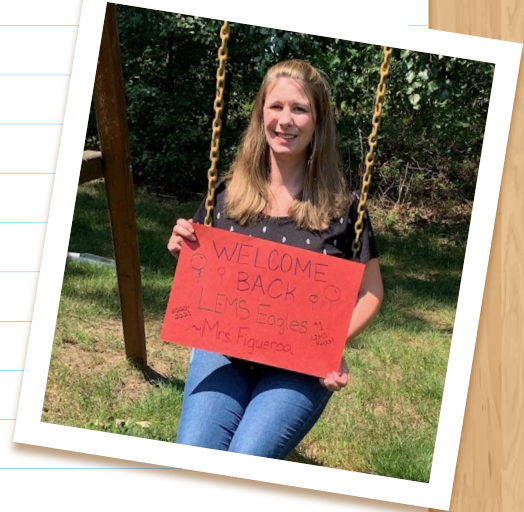 WELCOME
BACK
LEMS Eagles
~Mrs. Figueroa